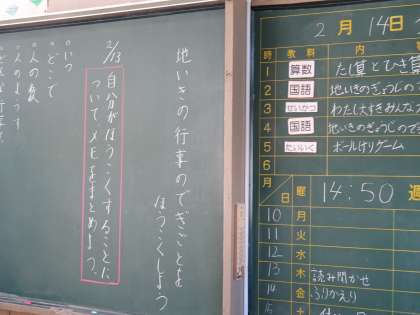 地いきの行事のできごとを
ほうこくしよう
2/13
自分がほうこくすることに
ついてメモをまとめよう。
◦いつ
◦どこで
◦人の数
◦人のようす
2月14日
時 教科 内
1 算数 たし算とひき算
2 国語 地いきのぎょうじの
3 せいかつ わたし大すきみんな
4 国語 地いきのぎょうじの
5 たいいく ボールけりゲーム
6
月日 曜 14:50 週
10 月
11 火
12 水
13 木 読み聞かせ
14 金 ふりかえり
15 土